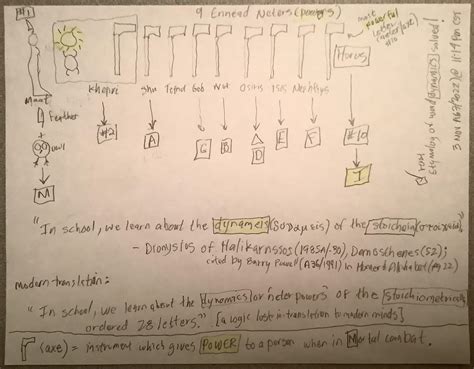 #1
9 Ennead Neters (powers)
most
powerful
letter
(neter/axe)
#10
Horus
Maat
Khepri
Shu
Tefnut
Geb
Nut
Osiris
Isis
Nephthys
Feather
+
owl
M
#2
A
G
B
D
E
F
#10
I
"In school, we learn about the dynameis (δυναμεις) of the stoicheia (στοιχεια)"
- Dionysius of Halikarnssos (1985A/-30), Damoschenes (52);
cited by Barry Powell (A36/1991) in Homer and Alphabet (pg. 22)
modern translation:
"In school, we learn about the dynamics (or "neter powers") of the stoichiometrically
ordered 28 letters." [a logic lost in translation to modern minds]
(axe) = instrument which gives POWER to a person when in Mortal combat.